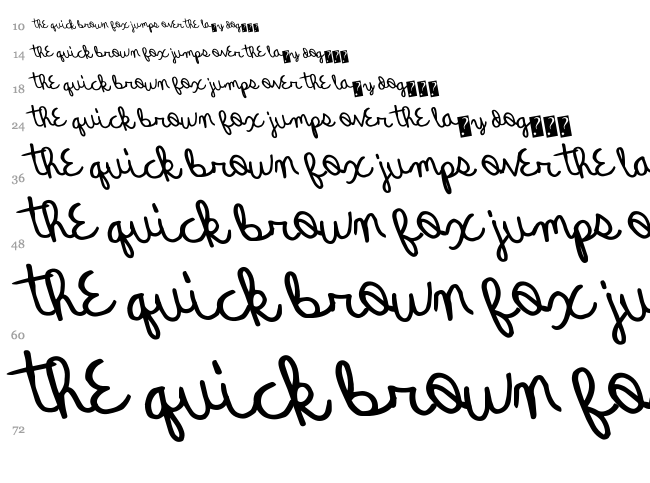 10 the quick brown fox jumps over the la y dog
14 the quick brown fox jumps over the la y dog
18 the quick brown fox jumps over the la y dog
24 the quick brown fox jumps over the la y dog
36 the quick brown fox jumps over the la
48 the quick brown fox jumps o
60 the quick brown fox ju
72 the quick brown fo